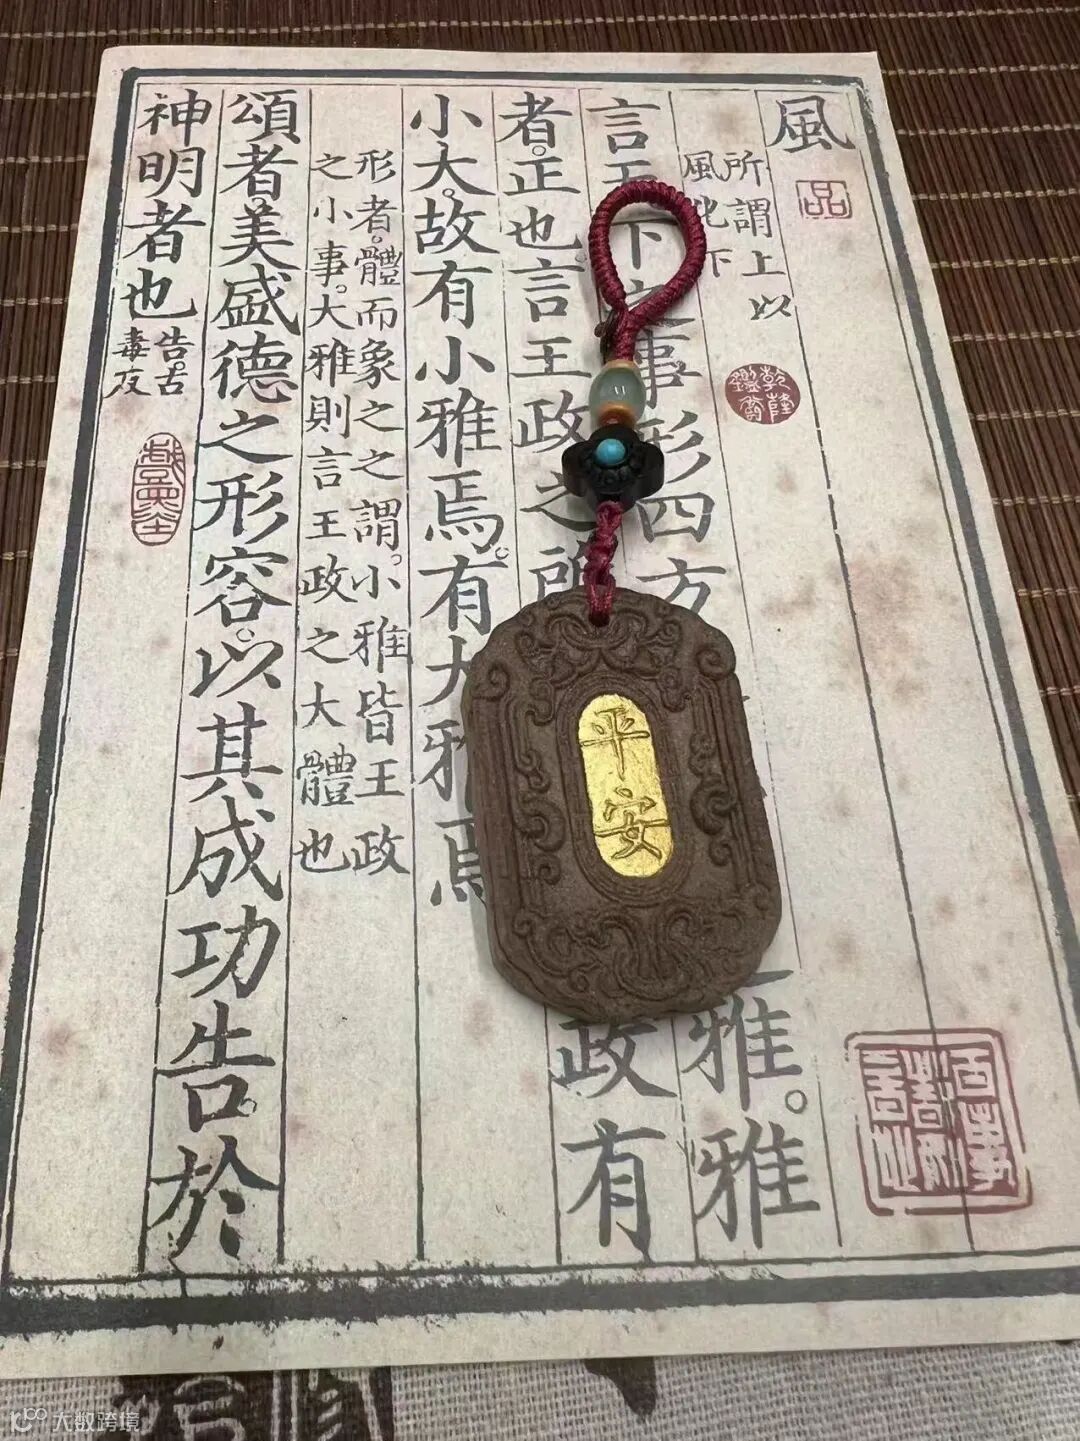 風
所謂上以
風化下
言
下之事形四方
雅。雅
者。正也。言王政之所
政有
小大。故有小雅焉。有大雅焉
形者。體而象之之謂。小雅皆王政
之小事。大雅則言王政之大體也
頌者。美盛德之形容。以其成功告於
神明者也
告。古
毒反
平安
乾隆
大数跨境